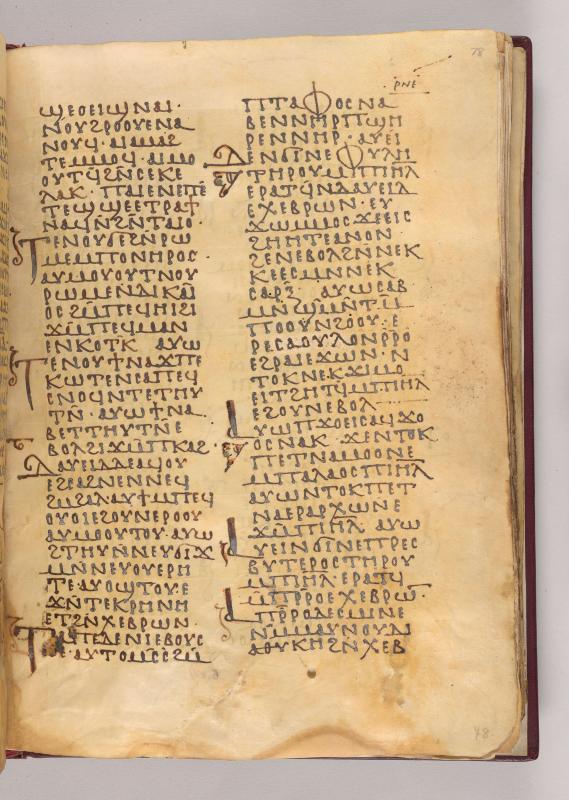 ϣⲉⲟⲉⲓϣⲛⲁⲓ·
ⲛⲟⲩϩⲣⲟⲟⲩⲉⲛⲁ
ⲛⲟⲩϥ· ⲁⲓⲁⲙⲁϩ
ⲧⲉⲙⲙⲟϥ· ⲁⲓⲙⲟ
ⲟⲩⲧϥϩⲛ̄ⲥⲉⲕⲉ
ⲗⲁⲕ· ⲡⲁⲓⲉⲛⲉⲡⲉ
ⲧⲉϣϣⲉⲉⲧⲣⲁϯ
ⲛⲁϥⲛ̄ϩⲛ̄ⲧⲁⲓⲟ
ⲧⲉⲛⲟⲩϭⲉϩⲛ̄ⲣⲱ
ⲙⲉⲙⲡⲟⲛⲏⲣⲟⲥ
ⲁⲩⲙⲟⲩⲟⲩⲧⲛⲟⲩ
ⲣⲱⲙⲉⲛⲇⲓⲕⲁⲓ
ⲟⲥϩⲙ̄ⲡⲉϥⲏⲓϩⲓ
ϫⲙ̄ⲡⲉϥⲙⲁⲛ
ⲉⲛⲕⲟⲧⲕ ⲁⲩⲱ
ⲧⲉⲛⲟⲩϯⲛⲁϫⲡⲉ
ⲕⲱⲧⲉⲛⲥⲁⲡⲉϥ
ⲥⲛⲟϥⲛⲧⲉⲧⲏⲩ
ⲧⲛ̄· ⲁⲩⲱϯⲛⲁ
ⲃⲉⲧⲧⲏⲩⲧⲛ̄ⲉ
ⲃⲟⲗϩⲓϫⲙ̄ⲡⲕⲁϩ·
ⲇⲁⲩⲉⲓⲇⲇⲉⲁϥⲟⲩ
ⲉϩⲥⲁϩⲛⲉⲛⲛⲉϥ
ϩⲙ̄ϩⲁⲗⲁⲩϯⲙⲡⲉϥ
ⲟⲩⲟⲓⲉϩⲟⲩⲛⲉⲣⲟⲟⲩ
ⲁⲩⲙⲟⲟⲩⲧⲟⲩ·ⲁⲩⲱ
ϩⲧⲏⲩⲛ̄ⲛⲉⲩϭⲓϫ
ⲙⲛ̄ⲛⲉⲩⲟⲩⲉⲣⲏ
ⲧⲉ·ⲁⲩⲟϣⲧⲟⲩ·ⲉ
ϫⲛ̄ⲧⲉⲕⲣⲏⲛⲏ
ⲉⲧϩⲛ̄ⲭⲉⲃⲣⲱⲛ·
ⲧⲁⲡⲉⲇⲉⲛⲓⲉⲃⲟⲩⲥ
ⲑⲉ·ⲁⲩⲧⲟⲙⲥⲥϩⲙ̄
ⲣⲛⲉ
ⲡⲧⲁⲫⲟⲥⲛⲁ
ⲃⲉⲛⲛⲏⲣⲡϣⲏ
ⲣⲉⲛⲛⲏⲣ· ⲁⲩⲉⲓ
ⲇⲉⲛϭⲓⲛⲉⲫⲩⲗⲏ
ⲧⲏⲣⲟⲩⲙⲡⲓⲏⲗ
ⲉⲣⲁⲧϥⲛⲇⲁⲩⲉⲓⲇ
ⲉⲭⲉⲃⲣⲱⲛ· ⲉⲩ
ϫⲱⲙⲙⲟⲥϫⲉⲉⲓⲥ
ϩⲏⲏⲧⲉⲁⲛⲟⲛ
ϩⲉⲛⲉⲃⲟⲗϩⲛ̄ⲛⲉⲕ
ⲕⲉⲉⲥⲙⲛⲛⲉⲕ
ⲥⲁⲣⲝ· ⲁⲩⲱⲥⲁⲃ
ⲙⲛ̄ϣⲙⲛ̄ⲧ
ⲡⲟⲟⲩⲛϩⲟⲟⲩ· ⲉ
ⲣⲉⲥⲁⲟⲩⲗⲟⲛⲣⲣⲟ
ⲉϩⲣⲁⲓⲉϫⲱⲛ· ⲛ
ⲧⲟⲕⲛⲉⲕϫⲓⲙⲟ
ⲉⲓⲧϩⲏⲧϥⲙ̄ⲡⲓⲏⲗ
ⲉϩⲟⲩⲛⲉⲃⲟⲗ
ⲁⲩⲱⲡϫⲟⲉⲓⲥⲁϥϫⲟ
ⲟⲥⲛⲁⲕ· ϫⲉⲛⲧⲟⲕ
ⲡⲉⲧⲛⲁⲙⲟⲟⲛⲉ
ⲙⲡⲁⲗⲁⲟⲥⲡⲓⲏⲗ
ⲁⲩⲱⲛⲧⲟⲕⲡⲉⲧ
ⲛⲁⲉⲣⲁⲣⲭⲱⲛⲉ
ϫⲙ̄ⲡⲓⲏⲗ· ⲁⲩⲱ
ⲁⲩⲉⲓⲛϭⲓⲛⲉⲡⲣⲉⲥ
ⲃⲩⲧⲉⲣⲟⲥⲧⲏⲣⲟⲩ
ⲙⲡⲓⲏⲗ· ⲉⲣⲁⲧϥ
ⲙ̄ⲡⲣⲣⲟⲉⲭⲉⲃⲣⲱ·
ⲁⲡⲣ̄ⲣⲟⲇⲉⲥⲙⲛⲉ
ⲛⲙ̄ⲙⲁⲩⲛⲟⲩⲇⲓ
ⲁⲑⲩⲕⲏϩⲛ̄ⲭⲉⲃ
78
48